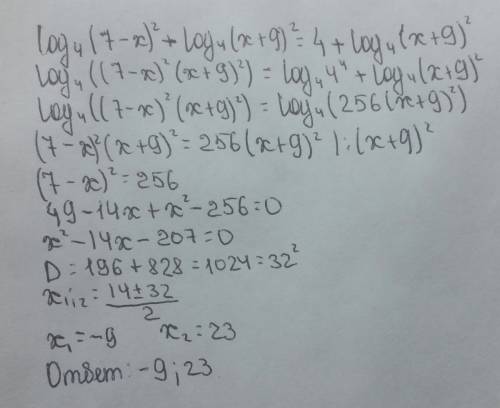 log₄(7-x)² + log₄(x+9)² = 4 + log₄(x+9)²
log₄((7-x)²(x+9)²) = log₄4⁴ + log₄(x+9)²
log₄((7-x)²(x+9)²) = log₄(256(x+9)²)
(7-x)²(x+9)² = 256(x+9)² |:(x+9)²
(7-x)² = 256
49-14x+x²-256=0
x²-14x-207=0
D = 196+828=1024=32²
x₁,₂ = (14±32)/2
x₁=-9 x₂=23
Ответ: -9; 23